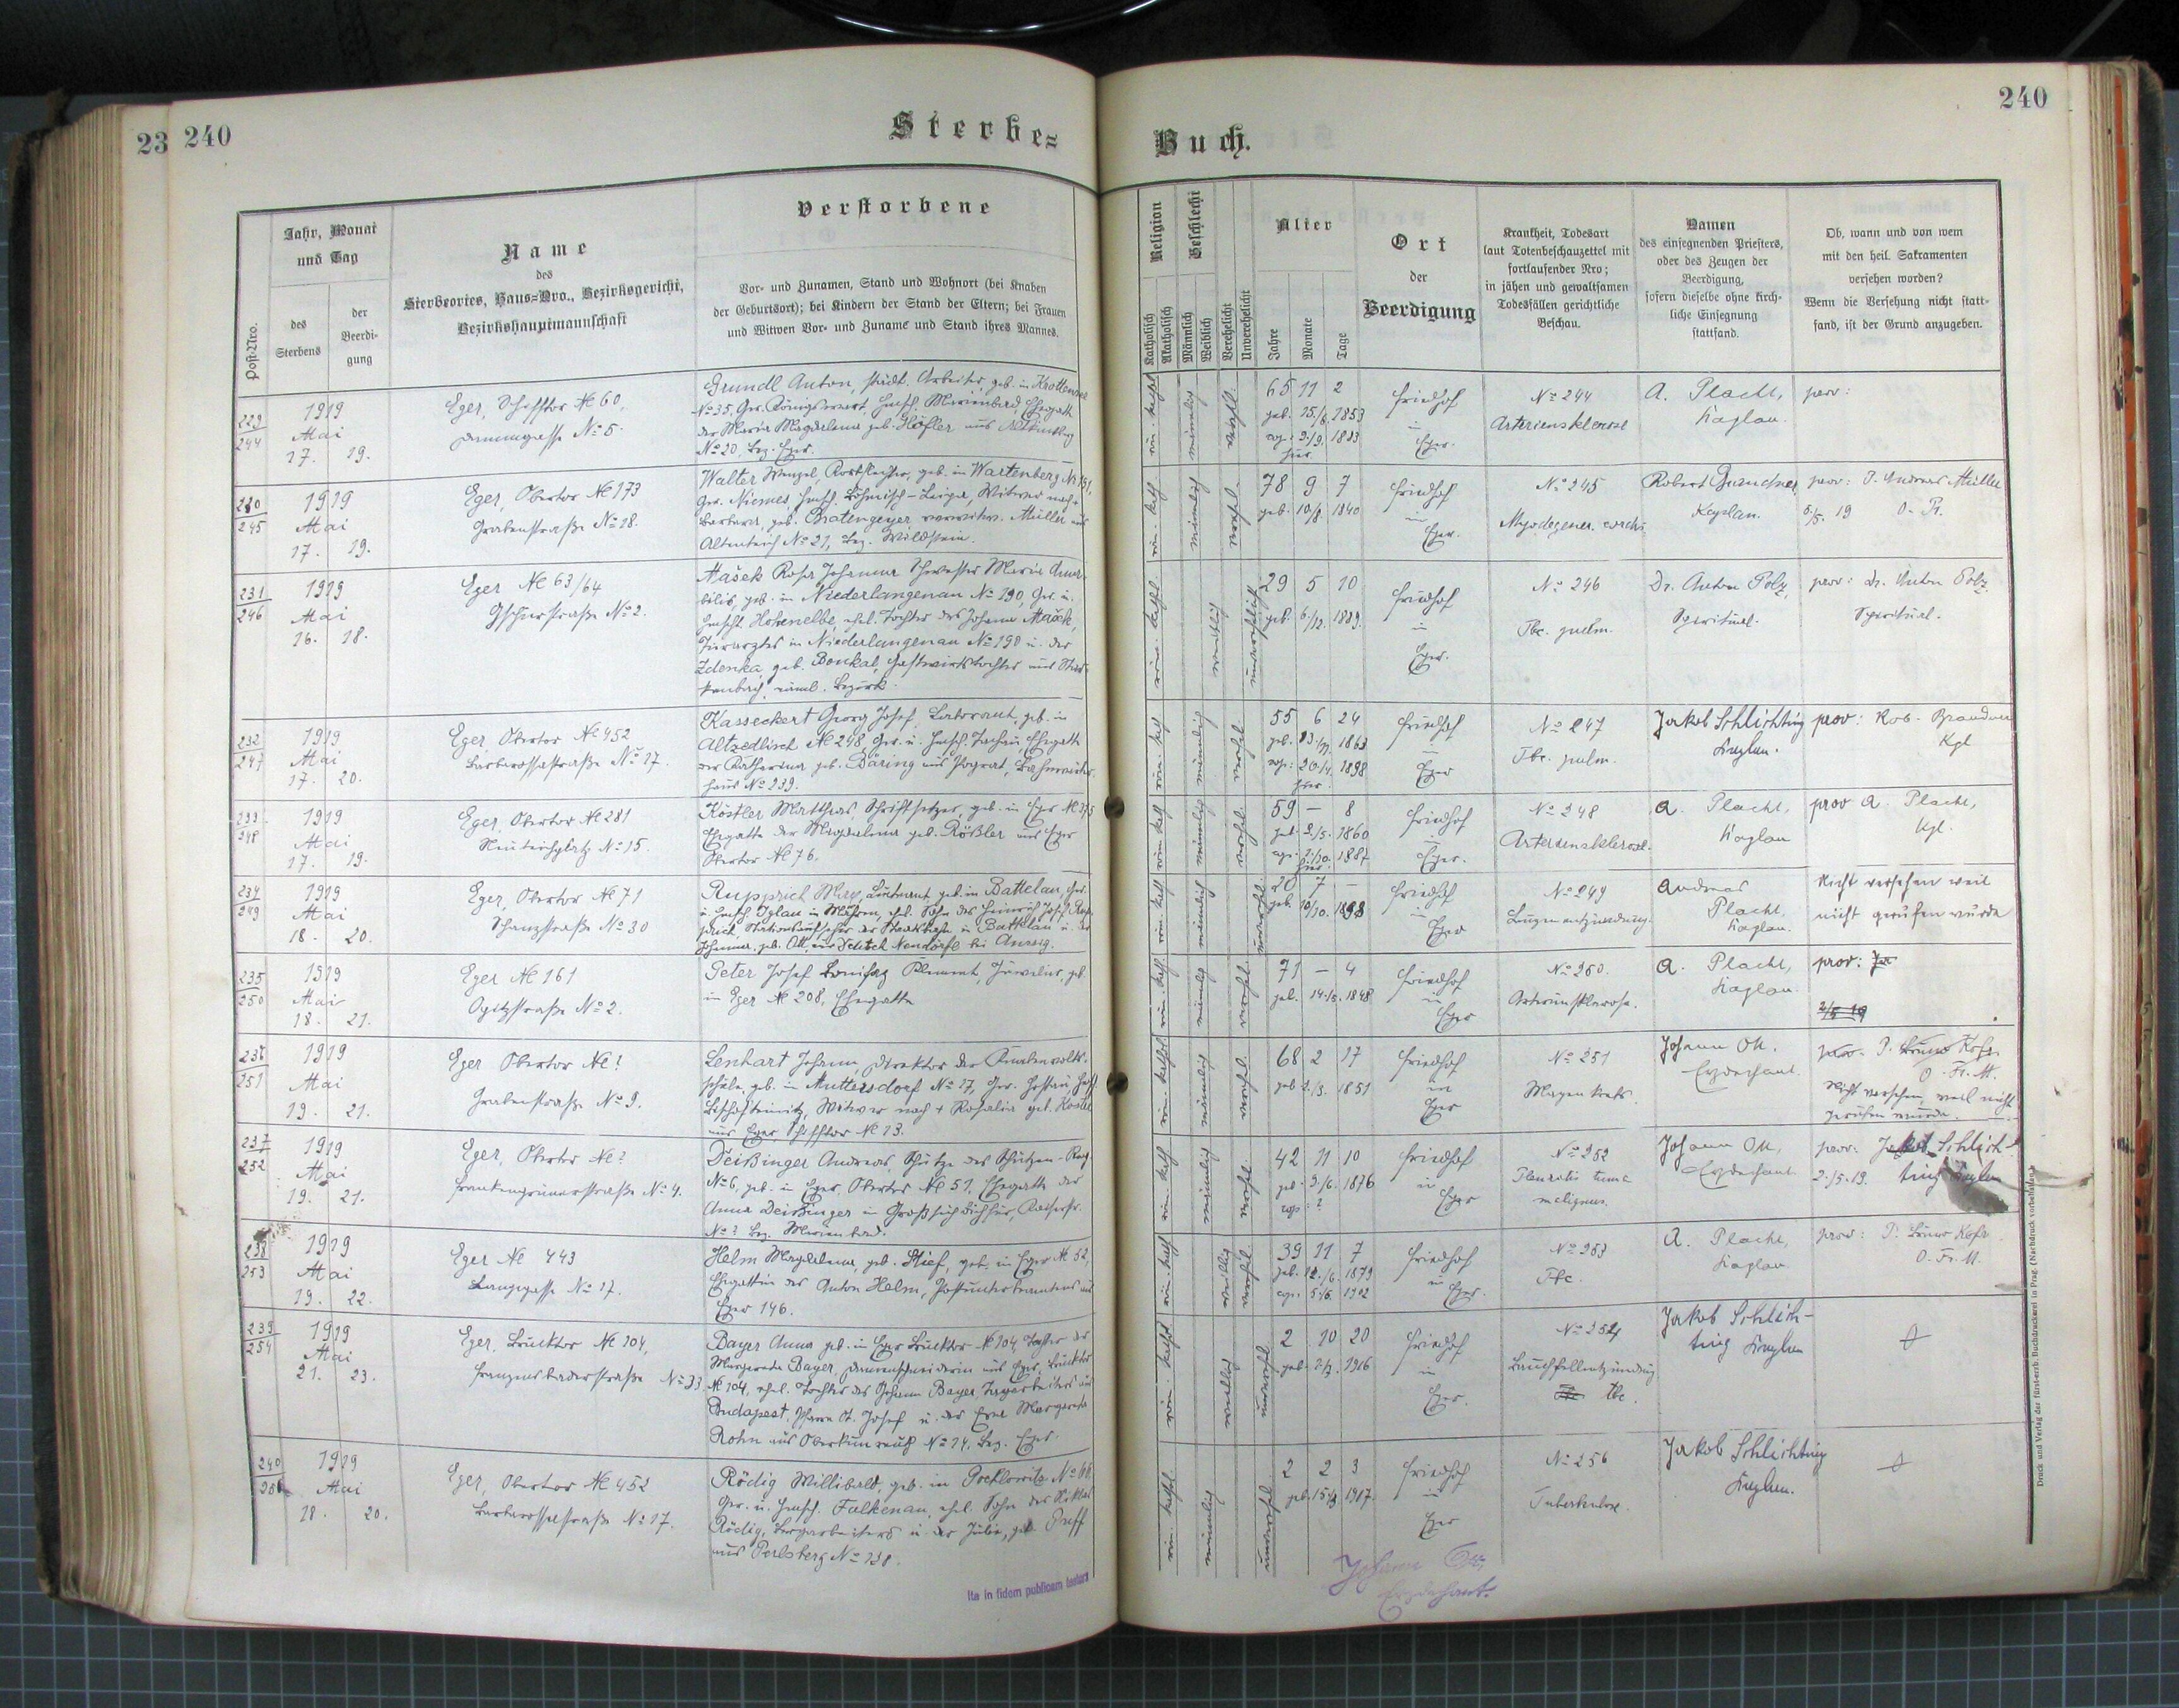 23 240
Sterbe=
Buch.
240
Post-Nro.
Jahr, Monat
und Tag
des
Sterbens
der
Beerdi-
gung
Name
des
Sterbeortes, Haus=Nro., Bezirksgericht,
Bezirkshauptmannschaft
Verstorbene
Vor- und Zunamen, Stand und Wohnort (bei Knaben
der Geburtsort); bei Kindern der Stand der Eltern; bei Frauen
und Witwen Vor- und Zuname und Stand ihres Mannes.
Religion
Katholisch
Akatholisch
Geschlecht
Männlich
Weiblich
Verehelicht
Unverehelicht
Alter
Jahre
Monate
Tage
Ort
der
Beerdigung
Krankheit, Todesart
laut Totenbeschauzettel mit
fortlaufender Nro;
in jähen und gewaltsamen
Todesfällen gerichtliche
Beschau.
Namen
des einsegnenden Priesters,
oder des Zeugen der
Beerdigung,
sofern dieselbe ohne kirch-
liche Einsegnung
stattfand.
Ob, wann und von wem
mit den heil. Sakramenten
versehen worden?
Wenn die Versehung nicht statt-
fand, ist der Grund anzugeben.
229
244
1919
Mai
17. 19.
Eger, Schifftor № 60,
№ 5.
Grundl Anton, städt. Arbeiter, geb. in
№ 35, Ger. Königswart, Hptsch. Marienbad, Ehegatte
der Maria Magdalena geb. Höfler aus
№ 20, Bez. Eger.
röm. kathol.
männlich
verehl.
65 11 2
geb. 15/6. 1853
cop. 9/9. 1883
hier
Friedhof
in
Eger.
№ 244
Arteriensklerose
A. Placht,
Kaplan.
prov:
230
245
1919
Mai
17. 19.
Eger, Obertor № 173
Grabenstraße № 28.
Walter Wenzel, Korbflechter, geb. in Wartenberg № 151,
Ger. Niemes, Hptsch. Böhmisch-Leipa, Witwer nach
Barbara, geb. verwitw. Müller aus
Altenteich № 21, Bez. Wildstein.
röm. kath
männlich
verehel.
78 9 7
geb. 10/8. 1840
Friedhof
in
Eger.
№ 245
Myodegener. cordis
Robert
Kaplan.
prov: P. Andreas Müller
5/5. 19 O. Pr.
231
246
1919
Mai
16. 18.
Eger № 63/64
№ 2.
Mašek Rosa Johanna Schwester Maria Ama-
bilis, geb. in Niederlangenau № 190, Ger. u.
Hptsch. Hohenelbe, ehel. Tochter des Johann Mašek,
Tierarztes in Niederlangenau № 190 u. der
Zdenka, geb. Boukal, Gastwirtstochter aus Star-
kenbach, näml. Bezirk.
röm. kathol
weiblich
unverehelicht
29 5 10
geb. 6/12. 1889.
Friedhof
in
Eger.
№ 246
Tbc. pulm.
Dr. Anton Polz,
Spiritual.
prov: Dr. Anton Polz
Spiritual.
232
247
1919
Mai
17. 20.
Eger, Obertor № 452
Barbarossastraße № 17.
Kasseckert Georg Josef, Laborant, geb. in
Altzedlisch № 248, Ger. u. Hptsch. Tachau, Ehegatte
der Katharina geb. Däring aus Pograt, Bahnwächter-
haus № 239.
röm. kath
männlich
verehel
55 6 24
geb. 1863
cop: 20/4. 1898
hier
Friedhof
in
Eger
№ 247
Tbc. pulm.
Jakob Schlichting
Kaplan.
prov: Rob.
Kpl
233
248
1919
Mai
17. 19.
Eger, Obertor № 281
№ 15.
Köstler Matthias, Schriftsetzer, geb. in Eger №
Ehegatte der Magdalena geb. Rößler aus Eger
Obertor № 76.
röm. kath
männlich
verehel.
59 — 8
geb. 9/5. 1860
cop: 1887
hier
Friedhof
in
Eger.
№ 248
Arteriensklerose.
A. Placht,
Kaplan
prov A. Placht,
Kpl.
234
249
1919
Mai
18. 20.
Eger, Obertor № 71
Schanzstraße № 30
Rupprich Leutnant, geb. in Battelau, Ger.
u. Hptsch. Iglau in Mähren, ehel. Sohn des Heinrich Josef Rup-
prich, Stationsaufseher der Staatsbahn in Battelau u. der
Johanna, geb. Ott, aus Deutsch Neudörfl bei Aussig.
röm. kath
männlich
unverehel.
20 7 —
geb. 18/10. 1898
Friedhof
in
Eger
№ 249
Lungenentzündung.
Andreas
Placht,
Kaplan.
Nicht versehen weil
nicht gerufen wurde
235
250
1919
Mai
18. 21.
Eger № 161
Opitzstraße № 2.
Peter Josef Bonifaz Klement, Juwelier, geb.
in Eger № 208, Ehegatte
röm. kath.
männlich
verehel.
71 — 4
geb. 14/5. 1848
Friedhof
in
Eger
№ 250.
Arteriensklerose.
A. Placht,
Kaplan.
prov:
2/5 19
236
251
1919
Mai
19. 21.
Eger Obertor №?
Grabenstraße № 9.
Lenhart Johann, Direktor der Knabenvolks-
schule, geb. in Muttersdorf № 17, Ger. Hostau, Hptsch.
Bischofteinitz, Witwer nach † Rosalia geb. Köstler
aus Eger, Schifftor № 13.
röm. kathol
männlich
verehel.
68 2 17
geb. 2/3. 1851
Friedhof
in
Eger
№ 251
Magenkrebs.
Johann Ott,
Erzdechant.
prov. P. Bruno
O. Fr. M.
Nicht versehen, weil nicht
gerufen wurde.
237
252
1919
Mai
19. 21.
Eger, Obertor №?
Frankengrünerstraße № 4.
Deißinger Andreas, Schütze des Schützen-Reg.
№ 6, geb. in Eger, Obertor № 51, Ehegatte der
Anna Deißinger in Großsichdichfür, Kaiserstr.
№? Bez. Marienbad.
röm. kath
männlich
verehel.
42 11 10
geb. 9/6. 1876
cop: ?
Friedhof
in
Eger
№ 252
Pleuritis
malignus.
Johann Ott,
Erzdechant
prov. Jakob Schlich-
2./5. 19. ting Kaplan
238
253
1919
Mai
19. 22.
Eger № 443
Langegasse № 17.
Helm Magdalena, geb. Stief, geb. in Eger № 52,
Ehegattin des Anton Helm, Postunterbeamten aus
Eger 146.
röm. kath
weiblich
verehel.
39 11 7
geb. 12./6. 1879
cop. 5./6. 1902
Friedhof
in
Eger.
№ 253
Tbc.
A. Placht,
Kaplan
prov: P. Bruno
O. Fr. M.
239
254
1919
Mai
21. 23.
Eger, Brucktor № 104,
Franzensbaderstraße № 33.
Bayer Anna geb. in Eger Brucktor № 104, Tochter der
Margareta Bayer, Damenschneiderin aus Eger, Brucktor
№ 104, ehel. Tochter des Johann Bayer Tagarbeiters aus
Budapest, Pfarre St. Josef u. der Eva Margareta
Rohn aus Oberkunreuth № 14, Bez. Eger.
röm. kathol
weiblich
unverehel
2 10 20
geb. 1916
Friedhof
in
Eger.
№ 254
Bauchfellentzündung
Tbc.
Jakob Schlich-
ting Kaplan
240
1919
Mai
18. 20.
Eger, Obertor № 452
Barbarossastraße № 17.
Rödig Willibald, geb. in Pochlowitz № 66,
Ger. u. Hptsch. Falkenau, ehel. Sohn des Niklas
Rödig, Bergarbeiters u. der Julie, geb. Puff
aus Perlsberg № 138.
röm. kathol.
männlich
unverehel
2 2 3
geb. 15/3. 1917.
Friedhof
in
Eger
№ 256
Tuberkulose.
Jakob Schlichting
Kaplan.
Ita in fidem publicam testatur
Johann Ott,
Erzdechant.
Druck und Verlag der fürst-erzb. Buchdruckerei in Prag. (Nachdruck vorbehalten.)